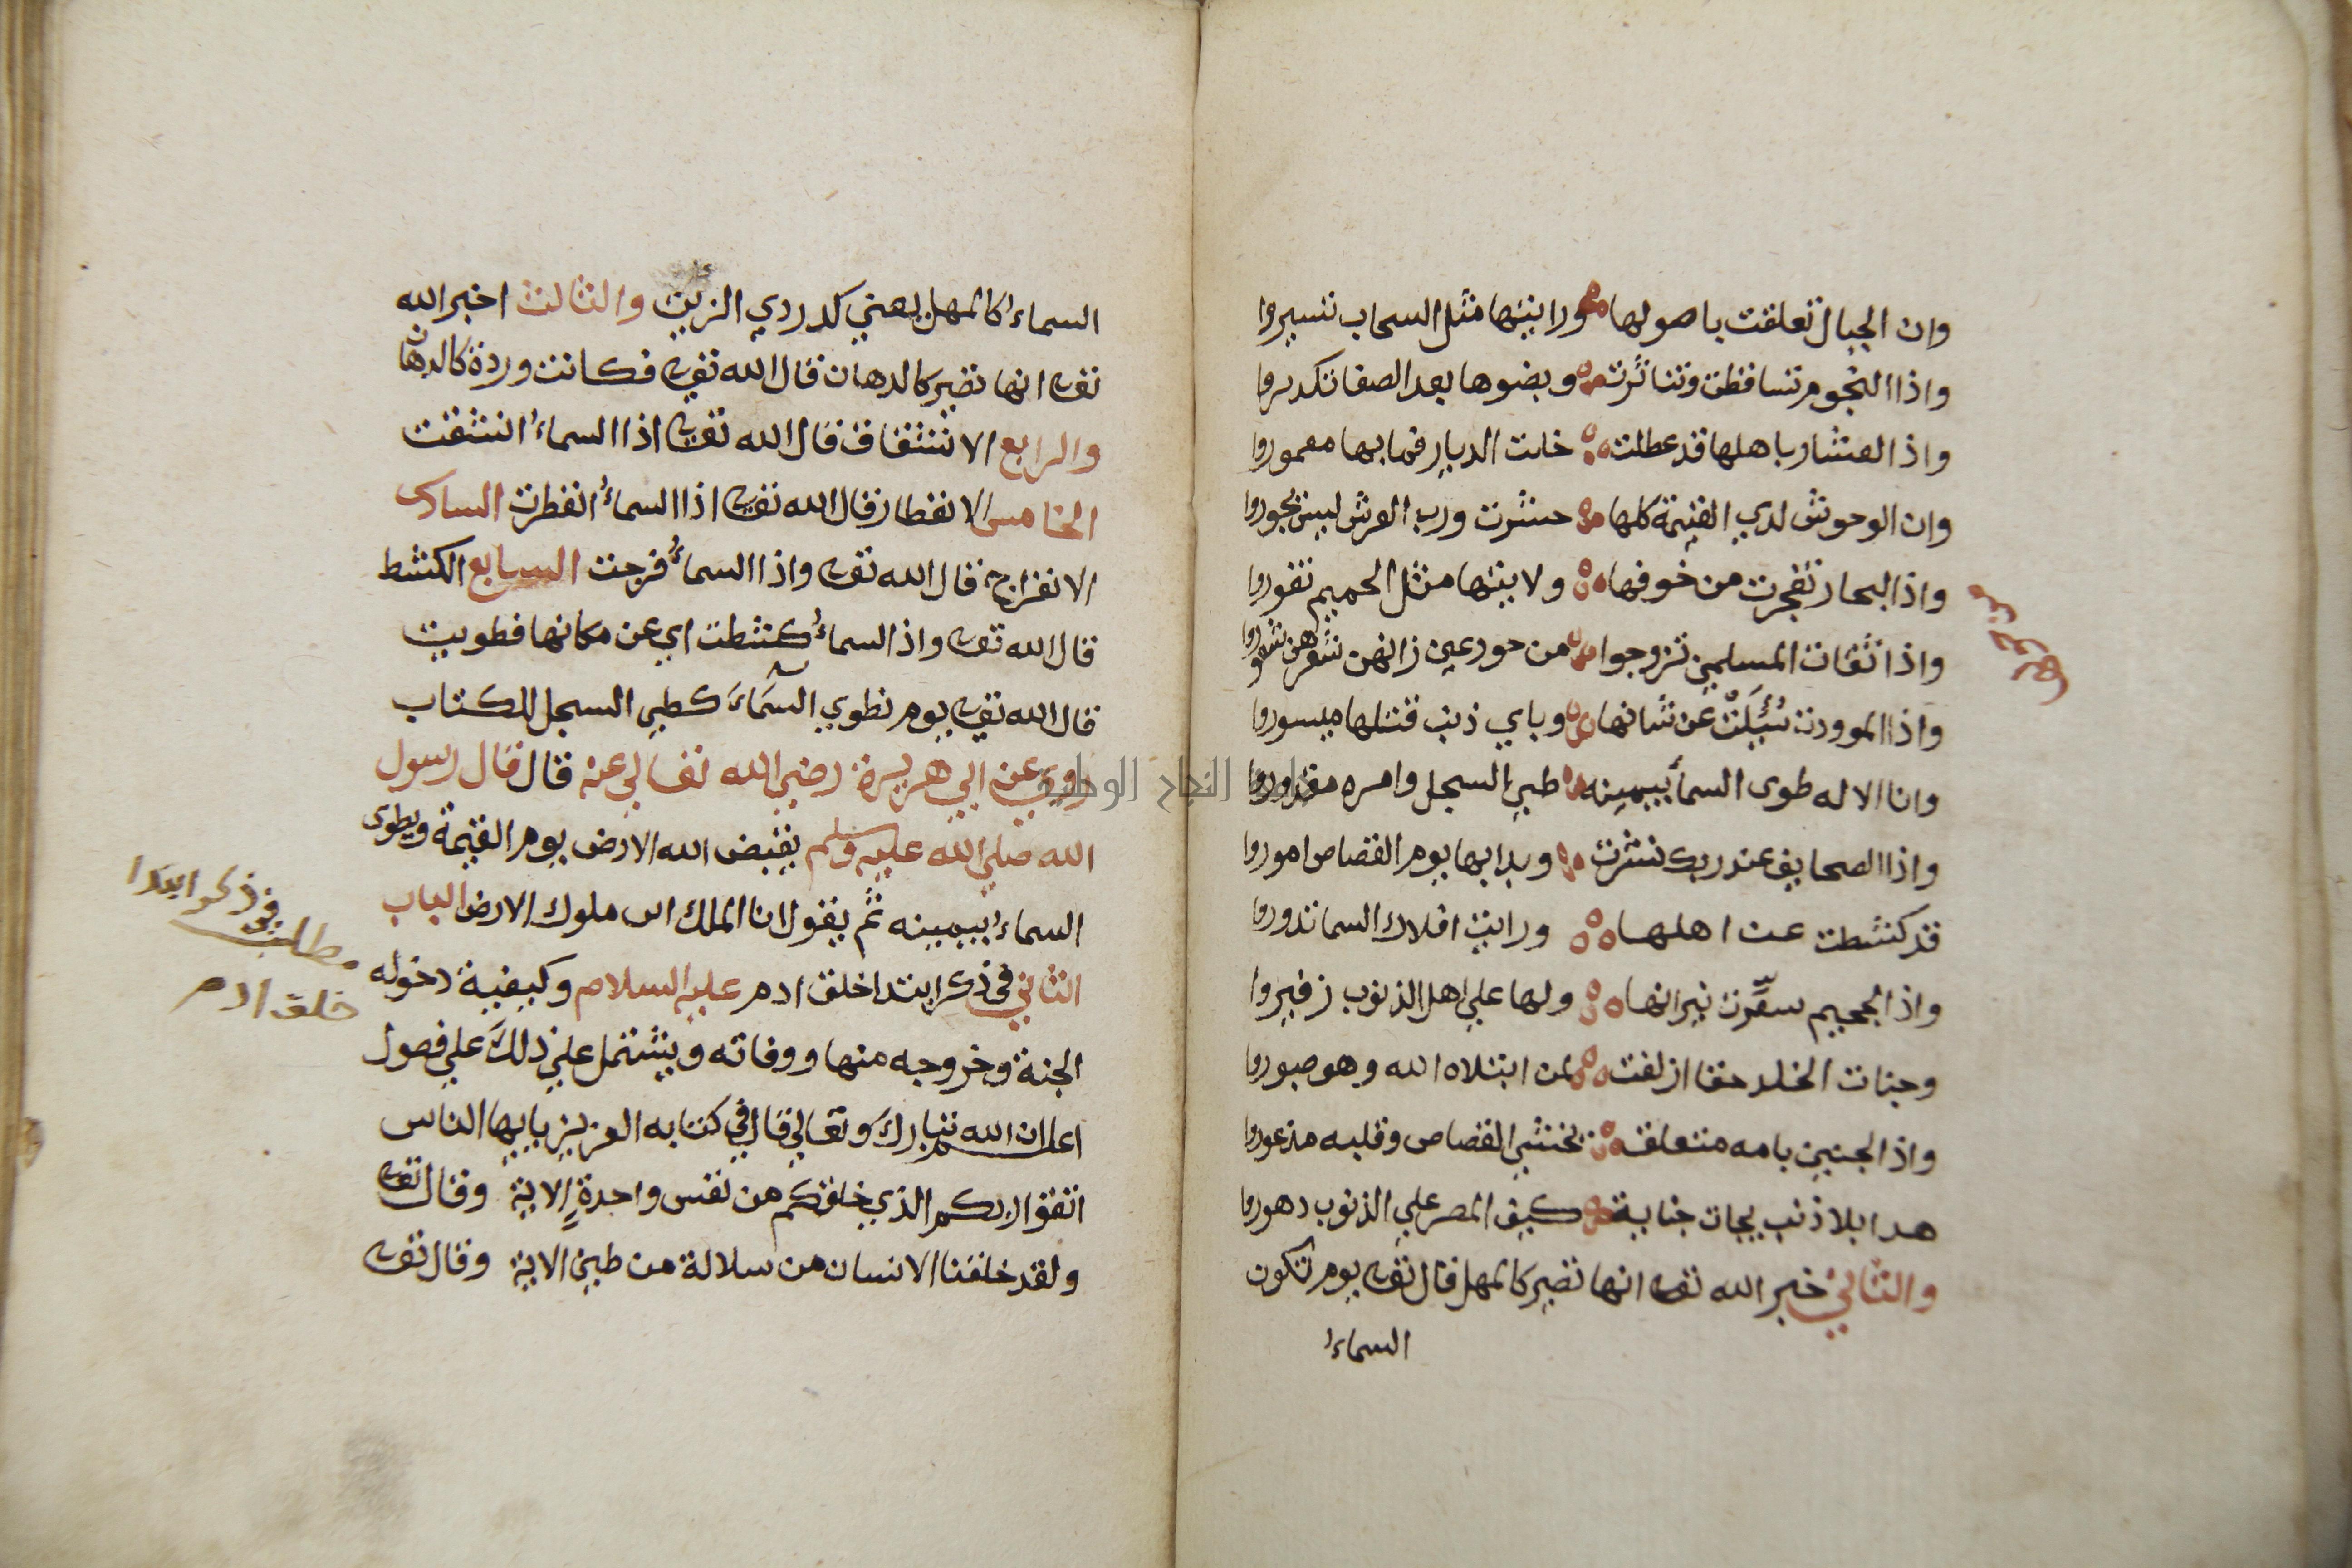 وان الجبال تعلقت باصولها ورايتها مثل السحاب تسيروا
واذا النجوم تساقطت وتناثرت وبضوها بعد الصفا تكدروا
واذ العشار باهلها قد عطلت خلت الديار فما بها معموروا
وان الوحوش لدي القيمة كلها حشرت ورب العرش ليس يجوروا
واذ البحار تفجرت من خوفها ولايتها مثل الحميم تفوروا
واذا ثقات المسلمين تزوجوا من حور عين زانهن شعرهن
واذا الموودة سُئِلَتْ عن شانها وباي ذنب قتلها ميسوروا
وانا الاله طوى السمأ بيمينه طي السجل وامره مقدوروا
واذا الصحايف عند ربك نشرت وبدا بها يوم القصاص اموروا
قد كشطت عن اهلها ورايت افلاك السما تدوروا
واذ الجحيم سعّرت نيرانها ولها علي اهل الذنوب زفيروا
وجنات الخلد حقا ازلفت لمن ابتلاه الله وهو صبوروا
واذ الجنين بامه متعلقه يخشي القصاص وقلبه مذعوروا
هدا بلا ذنب يجات جناية كيف المصر علي الذنوب دهوروا
والثاني خبر الله تعا انها تصير كالمهل قال تعا يوم تكون
السماءُ
السماءُ كالمهل يعني كدردي الزيت والثالث اخبر الله
تعا انها تصير كالدهان قال الله تعا فكانت وردة كالدهان
والرابع الانشقاق قال الله تعا اذا السماءُ انشقت
الخامس الانفطار قال الله تعا اذا السماءُ انفطرت السادس
الانفراج قال الله تعا واذا السماءُ فرجت السابع الكشط
قال الله تعا واذ السماءُ كشطت اي عن مكانها فطويت
قال الله تعا يوم نطوي السَّمَاءَ كطي السجل للكتاب
روي عن ابي هريرة رضي الله تعالي عنه قال قال رسول
الله صلي الله عليه وسلم يقبض الله الارض يوم القيمة ويطوى
السماءُ بيمينه ثم يقول انا الملك اين ملوك الارض الباب
الثاني في ذكر ابتدا خلق ادم عليه السلام وكيفية دخوله
الجنة وخروجه منها ووفاته ويشتمل علي ذلك علي فصول
اعلم ان الله تبارك وتعالي قال في كتابه العزيز يايها الناس
اتقوا ربكم الذي خلقكم من نفس واحدةٍ الاية وقال تعا
ولقد خلقنا الانسان من سلالة من طين الاية وقال تعا
مطلب في ذكر ابتدا
خلق ادم
النجاح الوطنية